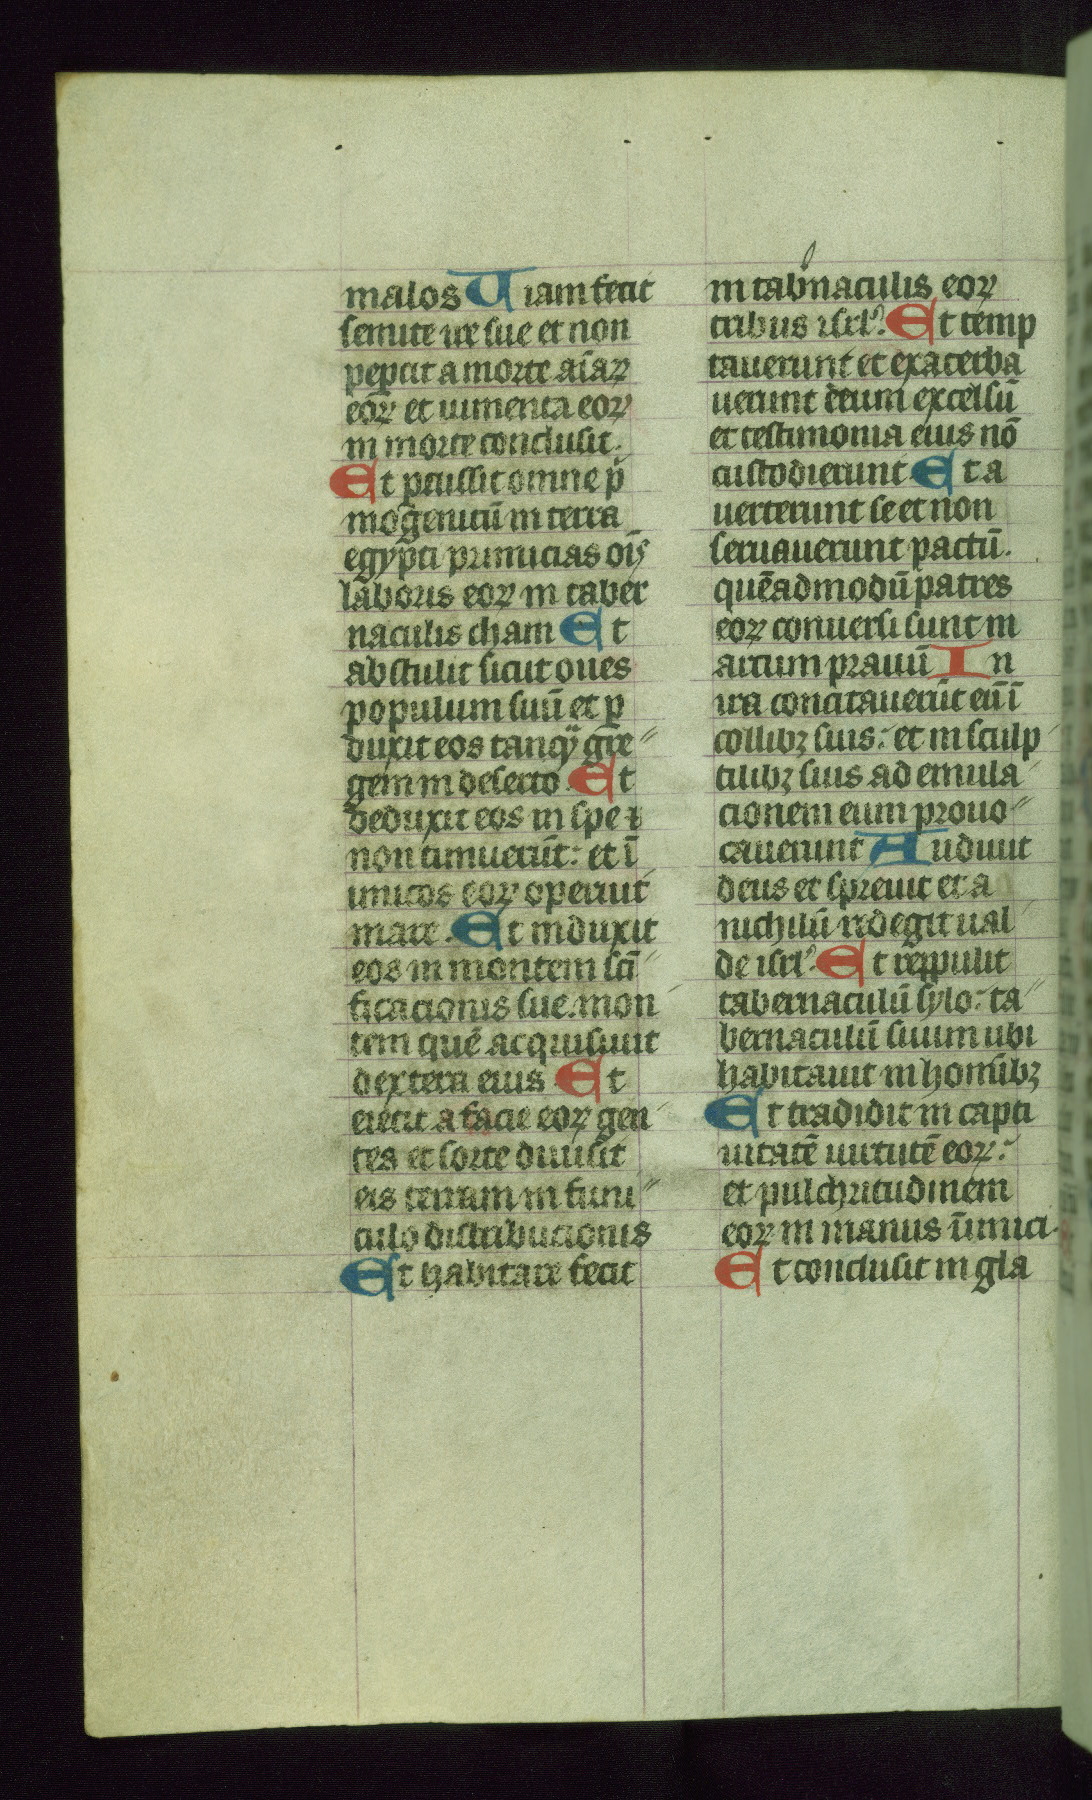 malos Uiam fecit
semite ire sue et non
peꝑcit a morte aīaꝝ
eoꝝ et iumenta eoꝝ
in morte conclusit.
Et ꝑcussit omne pͥ
mogenitū in terra
egypti primicias oīs
laboris eoꝝ in taber
naculis cham Et
abstulit sicut oues
populum suū et ꝑ
duxit eos tanqͣ gre〃
gem in deserto. Et
deduxit eos in spe ⁊
non timuerūt: et ī
imicos eoꝝ operuit
mare. Et induxit
eos in montem scī〃
ficacionis sue. mon
tem quē acquisiuit
dextera eius Et
eiecit a facie eoꝝ gen〃
tes et sorte diuisit
eis terram in funi〃
culo distribucionis
Et habitare fecit
in tab̄naculis eoꝝ
tribus isrl̓. Et temp
tauerunt et exacerba
uerunt deum excelsū
et testimonia eius nō
custodierunt Et a
uerterunt se et non
seruauerunt pactū.
quēadmodū patres
eoꝝ conuersi sunt in
arcum prauū In
ira concitauerūt eū ī
collibꝫ suis: et in sculp
tilibꝫ suis ad emula〃
cionem eum prouo〃
cauerunt Audiuit
deus et spreuit et a
nichilū redegit ual
de isrl̓. Et reppulit
tabernaculū sylo: ta〃
bernaculū suum ubi
habitauit in homībꝫ
Et tradidit in capti
uitatē uirtutē eoꝝ:
et pulchritudinem
eoꝝ in manus īnimici.
Et conclusit in gla